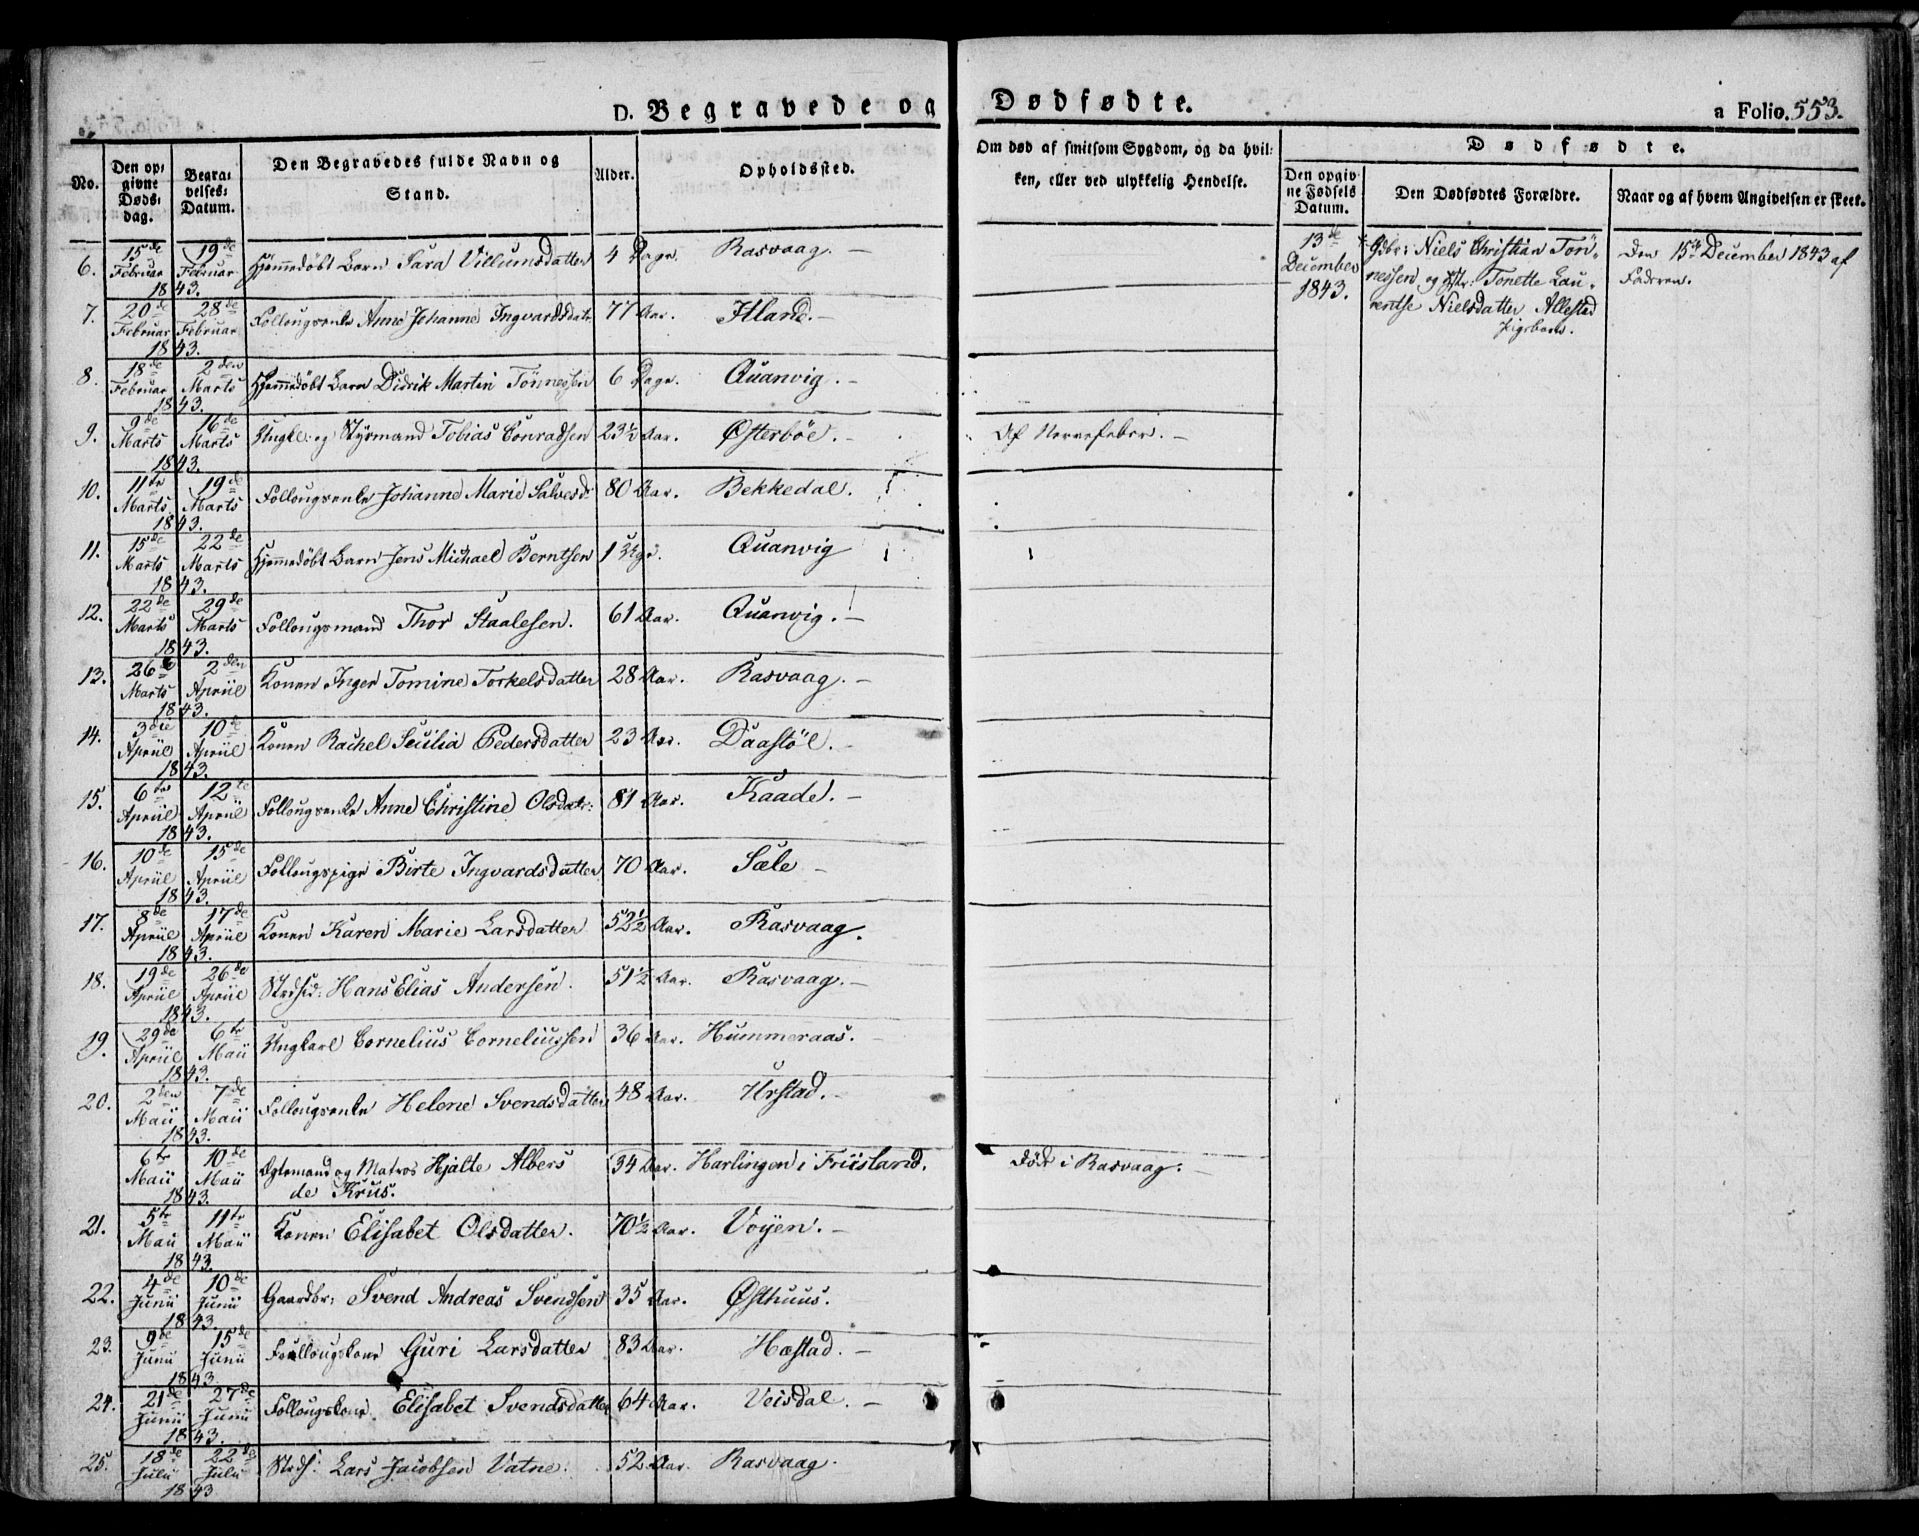 D. Begravede og Dødfødte. a Folio. 553.
No. Den opgivne Dødsdag. Begravelses-Datum. Den Begravedes fulde Navn og Stand. Alder. Opholdssted. Om død af smitsom Sygdom, og da hvilken, eller ved ulykkelig Hendelse.
Dødfødte.
Den opgivne Fødsels Datum. Den Dødfødtes Forældre. Naar og af hvem Angivelsen er skeet.
6. 15de Februar 19de Februar 1843. Hjemmedøbt Barn Sara Villumsdatter 4 Dage. Rasvaag. —
7. 20de Februar 28de Februar 1843. Follougsenke Anne Johanne Ingvardsdatr 77 Aar. Itland. —
8. 18de Februar 2den Marts 1843. Hjemmedøbt Barn Didrik Martin Tönnessen 6 Dage. Quanvig. —
9. 9de Marts 16de Marts 1843. Ungk: og Styrmand Tobias Conradsen 23½ Aar. Østerböe. — Af Nervefeber. —
10. 11te Marts 19de Marts 1843. Follougsenke Johanne Marie Salvesd: 80 Aar. Bekkedal.
11. 15de Marts 22de Marts 1843. Hjemmedöbt Barn Jens Michael Berntsen 1 Uge. Quanvig
12. 22de Marts 29de Marts 1843. Follougsmand Thor Staalesen. 61 Aar. Quanvig. —
13. 26de Marts 2den Apriil 1843. Konen Inger Tomine Torkelsdatter 28 Aar. Rasvaag. —
14. 3die Apriil 10de Apriil 1843. Konen Rachel Secilia Pedersdatter 23 Aar. Daastöl. —
15. 6te Apriil 12te Apriil 1843. Follougsenke Anne Christine Olsdatr: 81 Aar. Kaade. —
16. 10de Apriil 15de Apriil 1843. Follougspige Birte Ingvardsdatter 70 Aar. Sæle —
17. 8de Apriil 17de Apriil 1843. Konen Karen Marie Larsdatter 52½ Aar. Rasvaag.
18. 19de Apriil 26de Apriil 1843. Strdsid: Hans Elias Andersen. 51½ Aar. Rasvaag. —
19. 29de Apriil 6te Maii 1843. Ungkarl Cornelius Corneliussen 36 Aar. Hummeraas. —
20. 2den Maii 7de Maii 1843. Follougsenke Helene Svendsdatter 48 Aar. Urstad. —
6te Maii 10de Maii 1843. Ægtemand og Matros Hjalte Albers 34 Aar. Harlingen i Friisland. Död i Rasvaag. —
de Krus.
21. 5te Maii 11te Maii 1843. Konen Elisabet Olsdatter. 70½ Aar. Voÿen. —
22. 4de Junii 10de Junii 1843. Gaardbr: Svend Andreas Svendsen 35 Aar. Østhuus.
23. 9de Junii 15de Junii 1843. Follougskone Guri Larsdatter 83 Aar. Hæstad. —
24. 21de Junii 27de Junii 1843. Follougskone Elisabet Svendsdatter 64 Aar. Veisdal. —
25. 18de Julii 22de Julii 1843 Strds: Lars Jacobsen Vatne. 52 Aar. Rasvaag.
13de December 1843.
Gdbr: Niels Christian Tönnessen og Hstr: Tonette Laurentse Nielsdatter Allestad
Pigebarn.
Den 15de December 1843 af
Faderen.